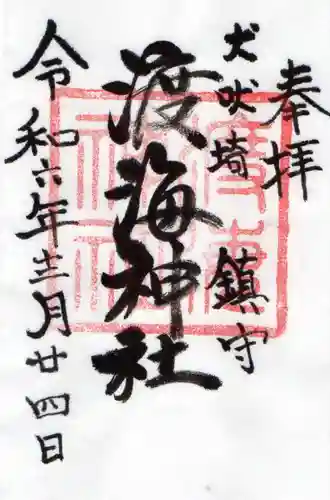 奉拝
犬吠埼 鎮守
渡海神社
令和六年十二月廿四日